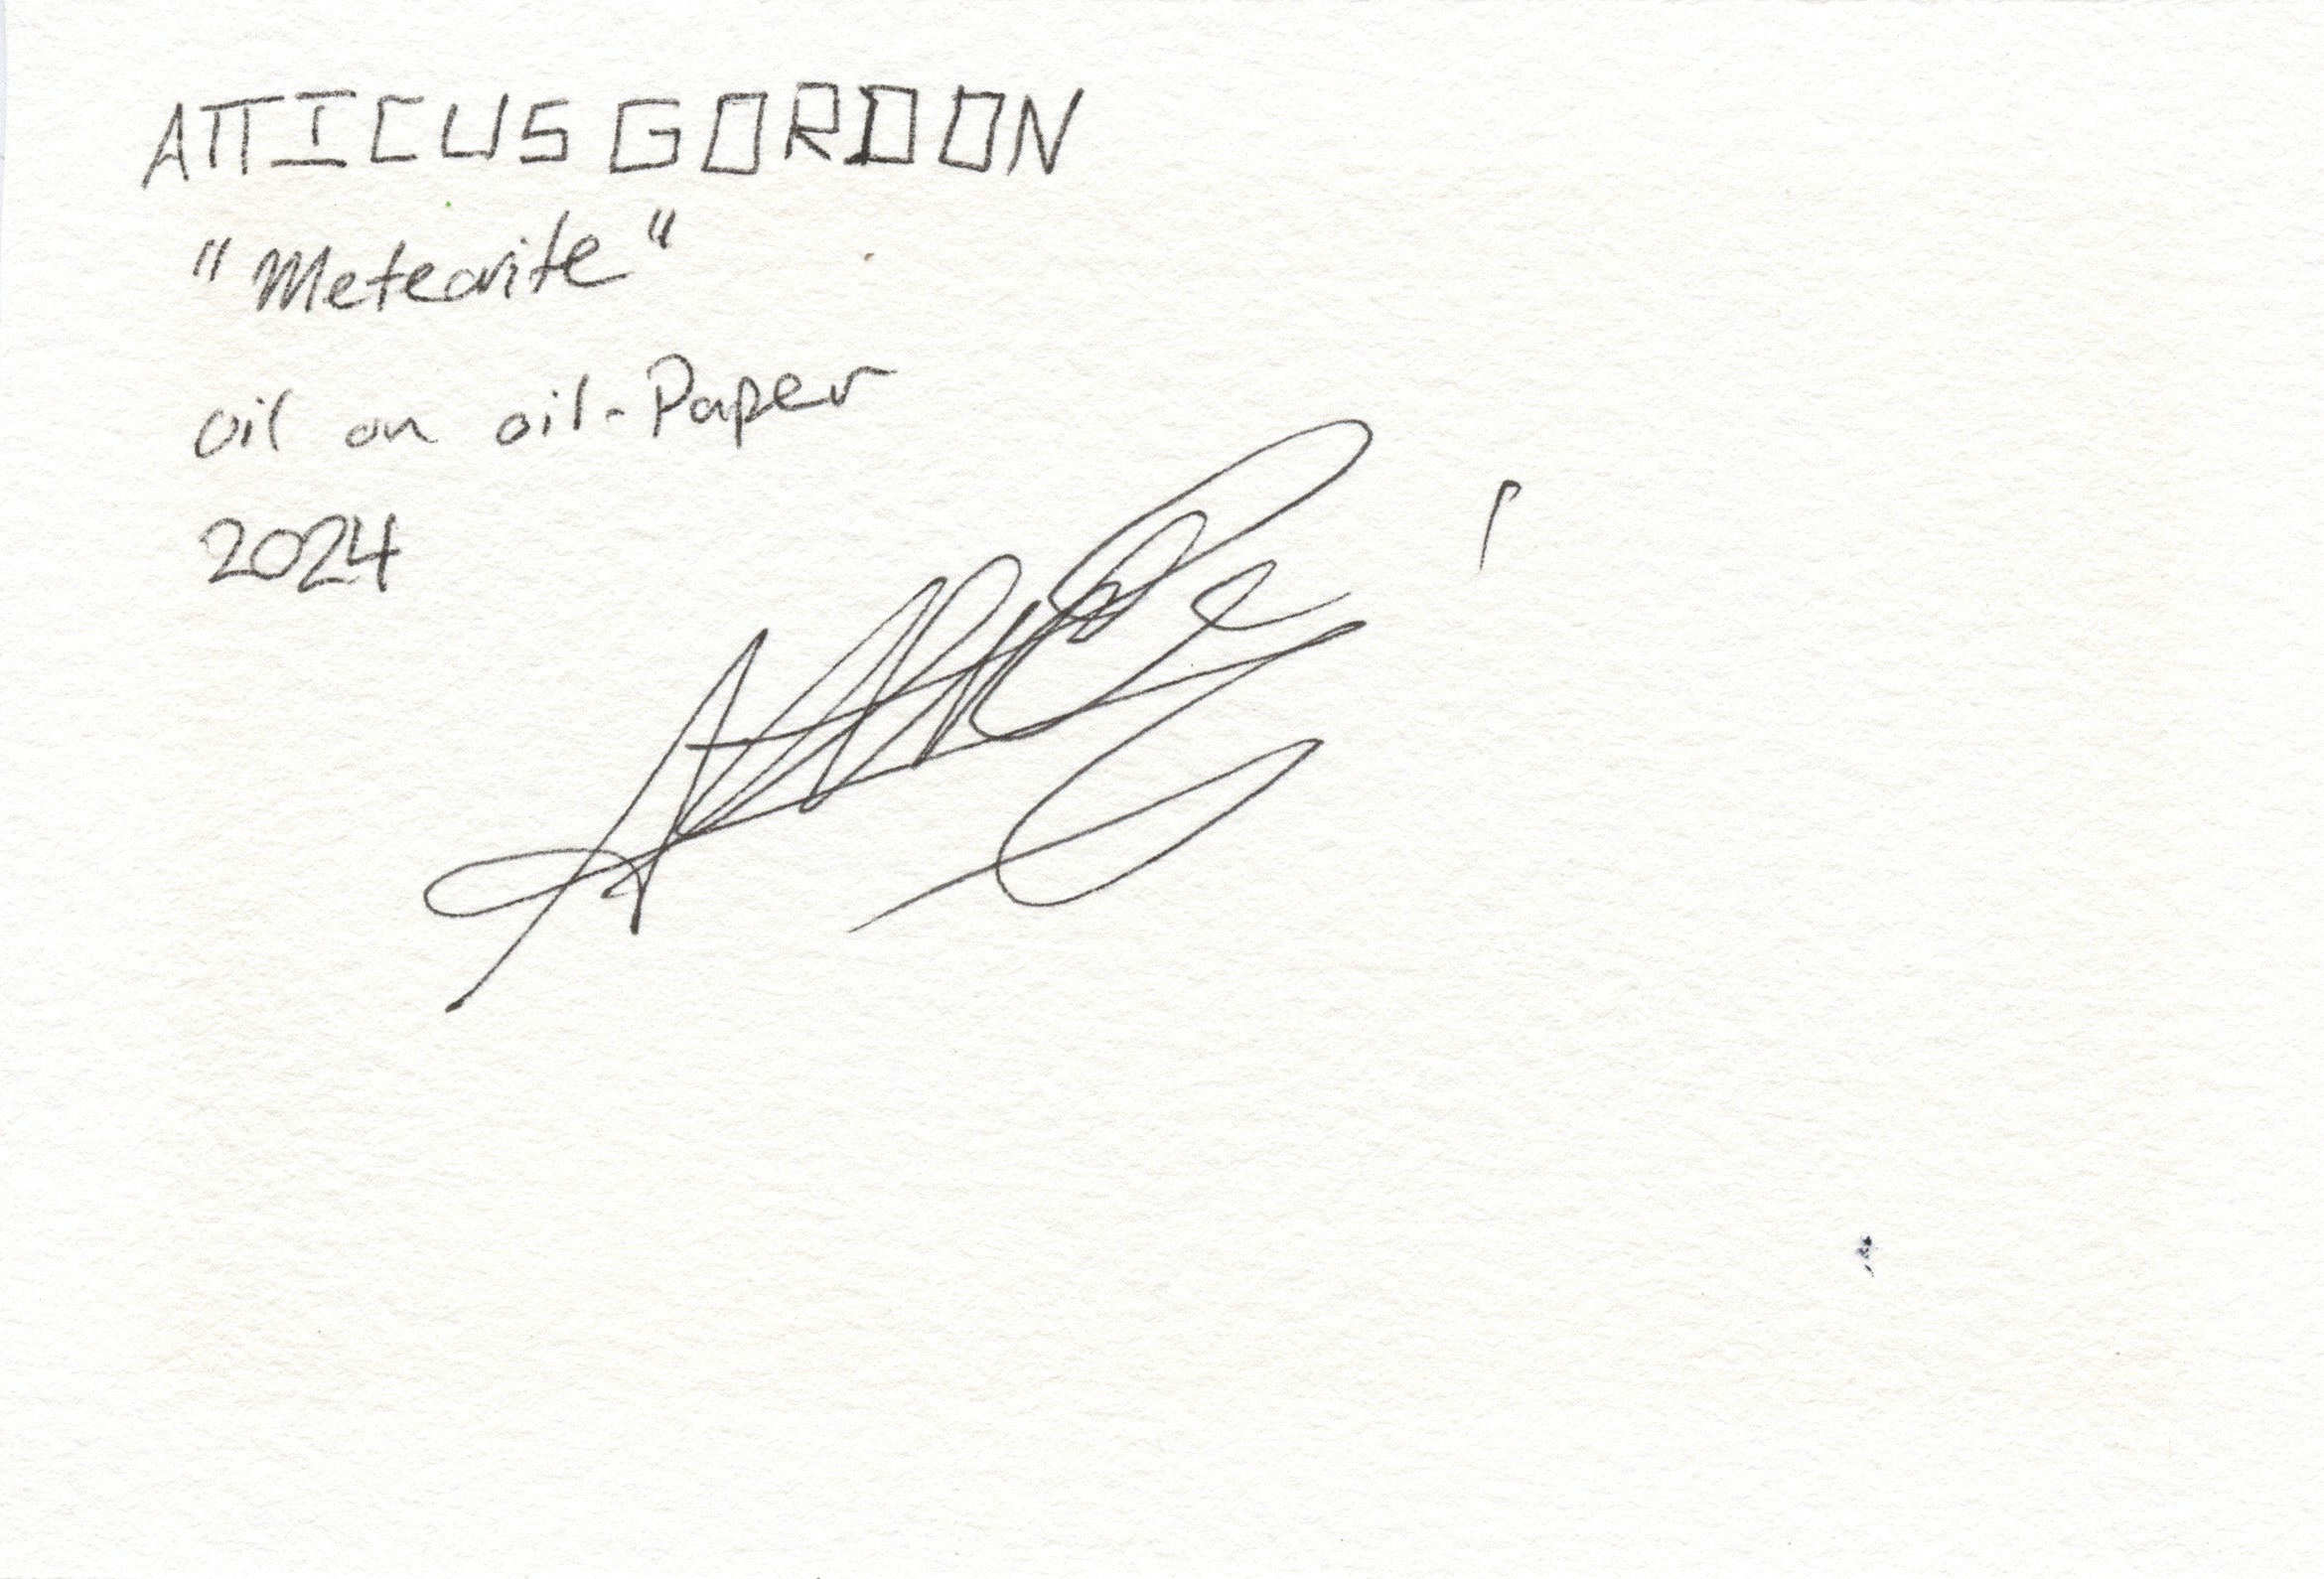 ATTICUS GORDON
"Meteorite"
oil on oil-Paper
2024